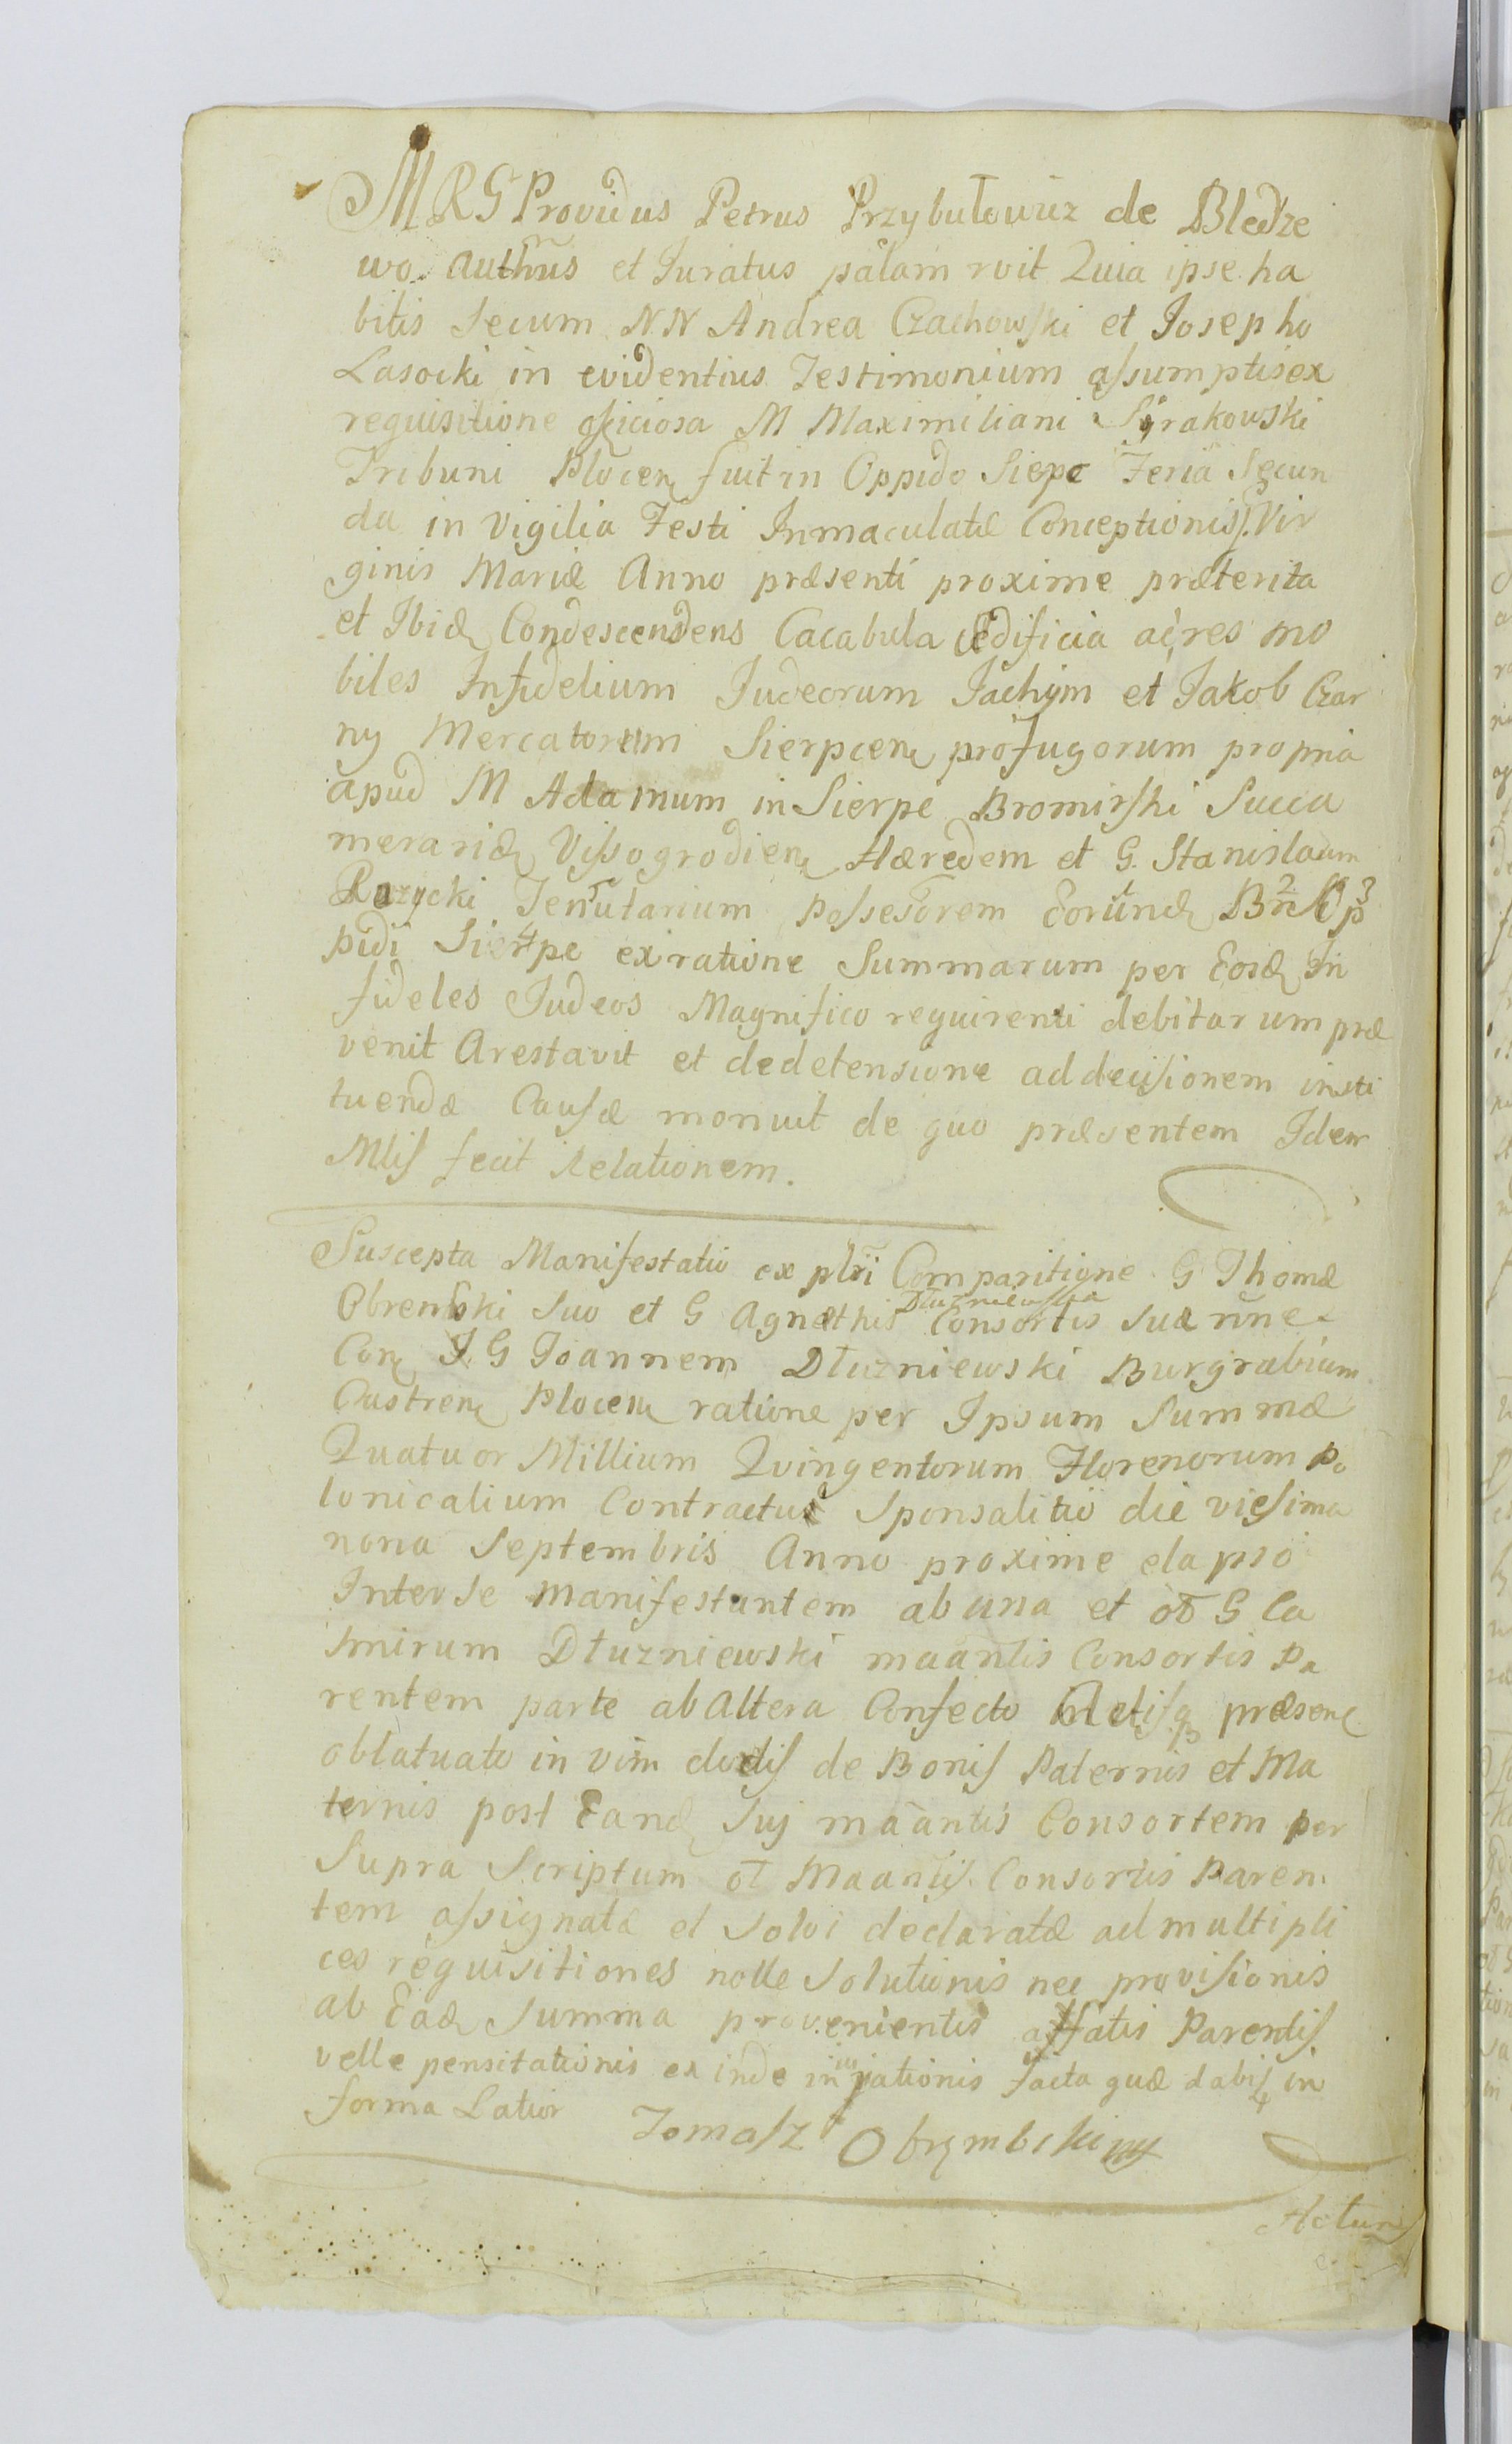 MRG Providus Petrus Przybułowicz de Bledze
wo. Authñus et Juratus palam rvit Quia ipse ha
bitis Secum NN Andrea Czachowski et Josepho
Lasocki in evidentius Testimonium assumptis ex
requisitione officiosa M Maximiliani Sierakowski
Tribuni Plocen fuit in Oppido Sierpc Feria Secun
da in Vigilia Festi Inmaculatæ Conceptionis Vir
ginis Mariæ Anno præsenti proxime præterita
et Ibid Condescendens Cacabula ædificia ac res mo
biles Infidelium Judeorum Jachym et Jakob Czar
ny Mercatorum Sierpcen profugorum propria
apud M Adamum in Sierpc Bromirski Succa
merarid Vissogrodien Hæredem et G. Stanislaum
Rozycki Tenutarium Possesorem Eorund Bn Op
pidi Sierpc ex ratione Summarum per Eosd In
fideles Judeos Magnifico requirenti debitarum præ
venit Arestavit et de detensione ad decisionem insti
tuendæ Causæ monuit de quo præsentem Idem
Mlis fecit Relationem.
Suscepta Manifestatio ex plri Comparitione G Thomæ
Obrembski Suo et G Agnethis Dłuzniewska Consortis Suæ nñe
Con J. G Joannem Dłuzniewski Burgrabium
Castren Plocen ratione per Ipsum Summæ
Quatuor Millium Quingentorum Florenorum Po
lonicalium Contractus Sponsalitio die viesima
nona Septembris Anno proxime elapso
Inter Se Manifestantem ab una et oł G Ca
smirum Dłuzniewski maantis Consortis Pa
rentem parte ab Altera Confecto Actisq præsen
oblatuato in vim dotis de Bonis Paternis et Ma
ternis post Eand Suj maantis Consortem per
Supra Scriptum ol Maantis Consortis Paren
tem assignatæ et Solvi declaratæ ad multipli
ces requisitiones nolle Solutionis nec provisionis
ab Ead Summa provenientis affatis Parentis
velle pensitationis ex inde injuriationis facta quæ dabit in
forma Latior Tomasz Obrymbski mp
Actum